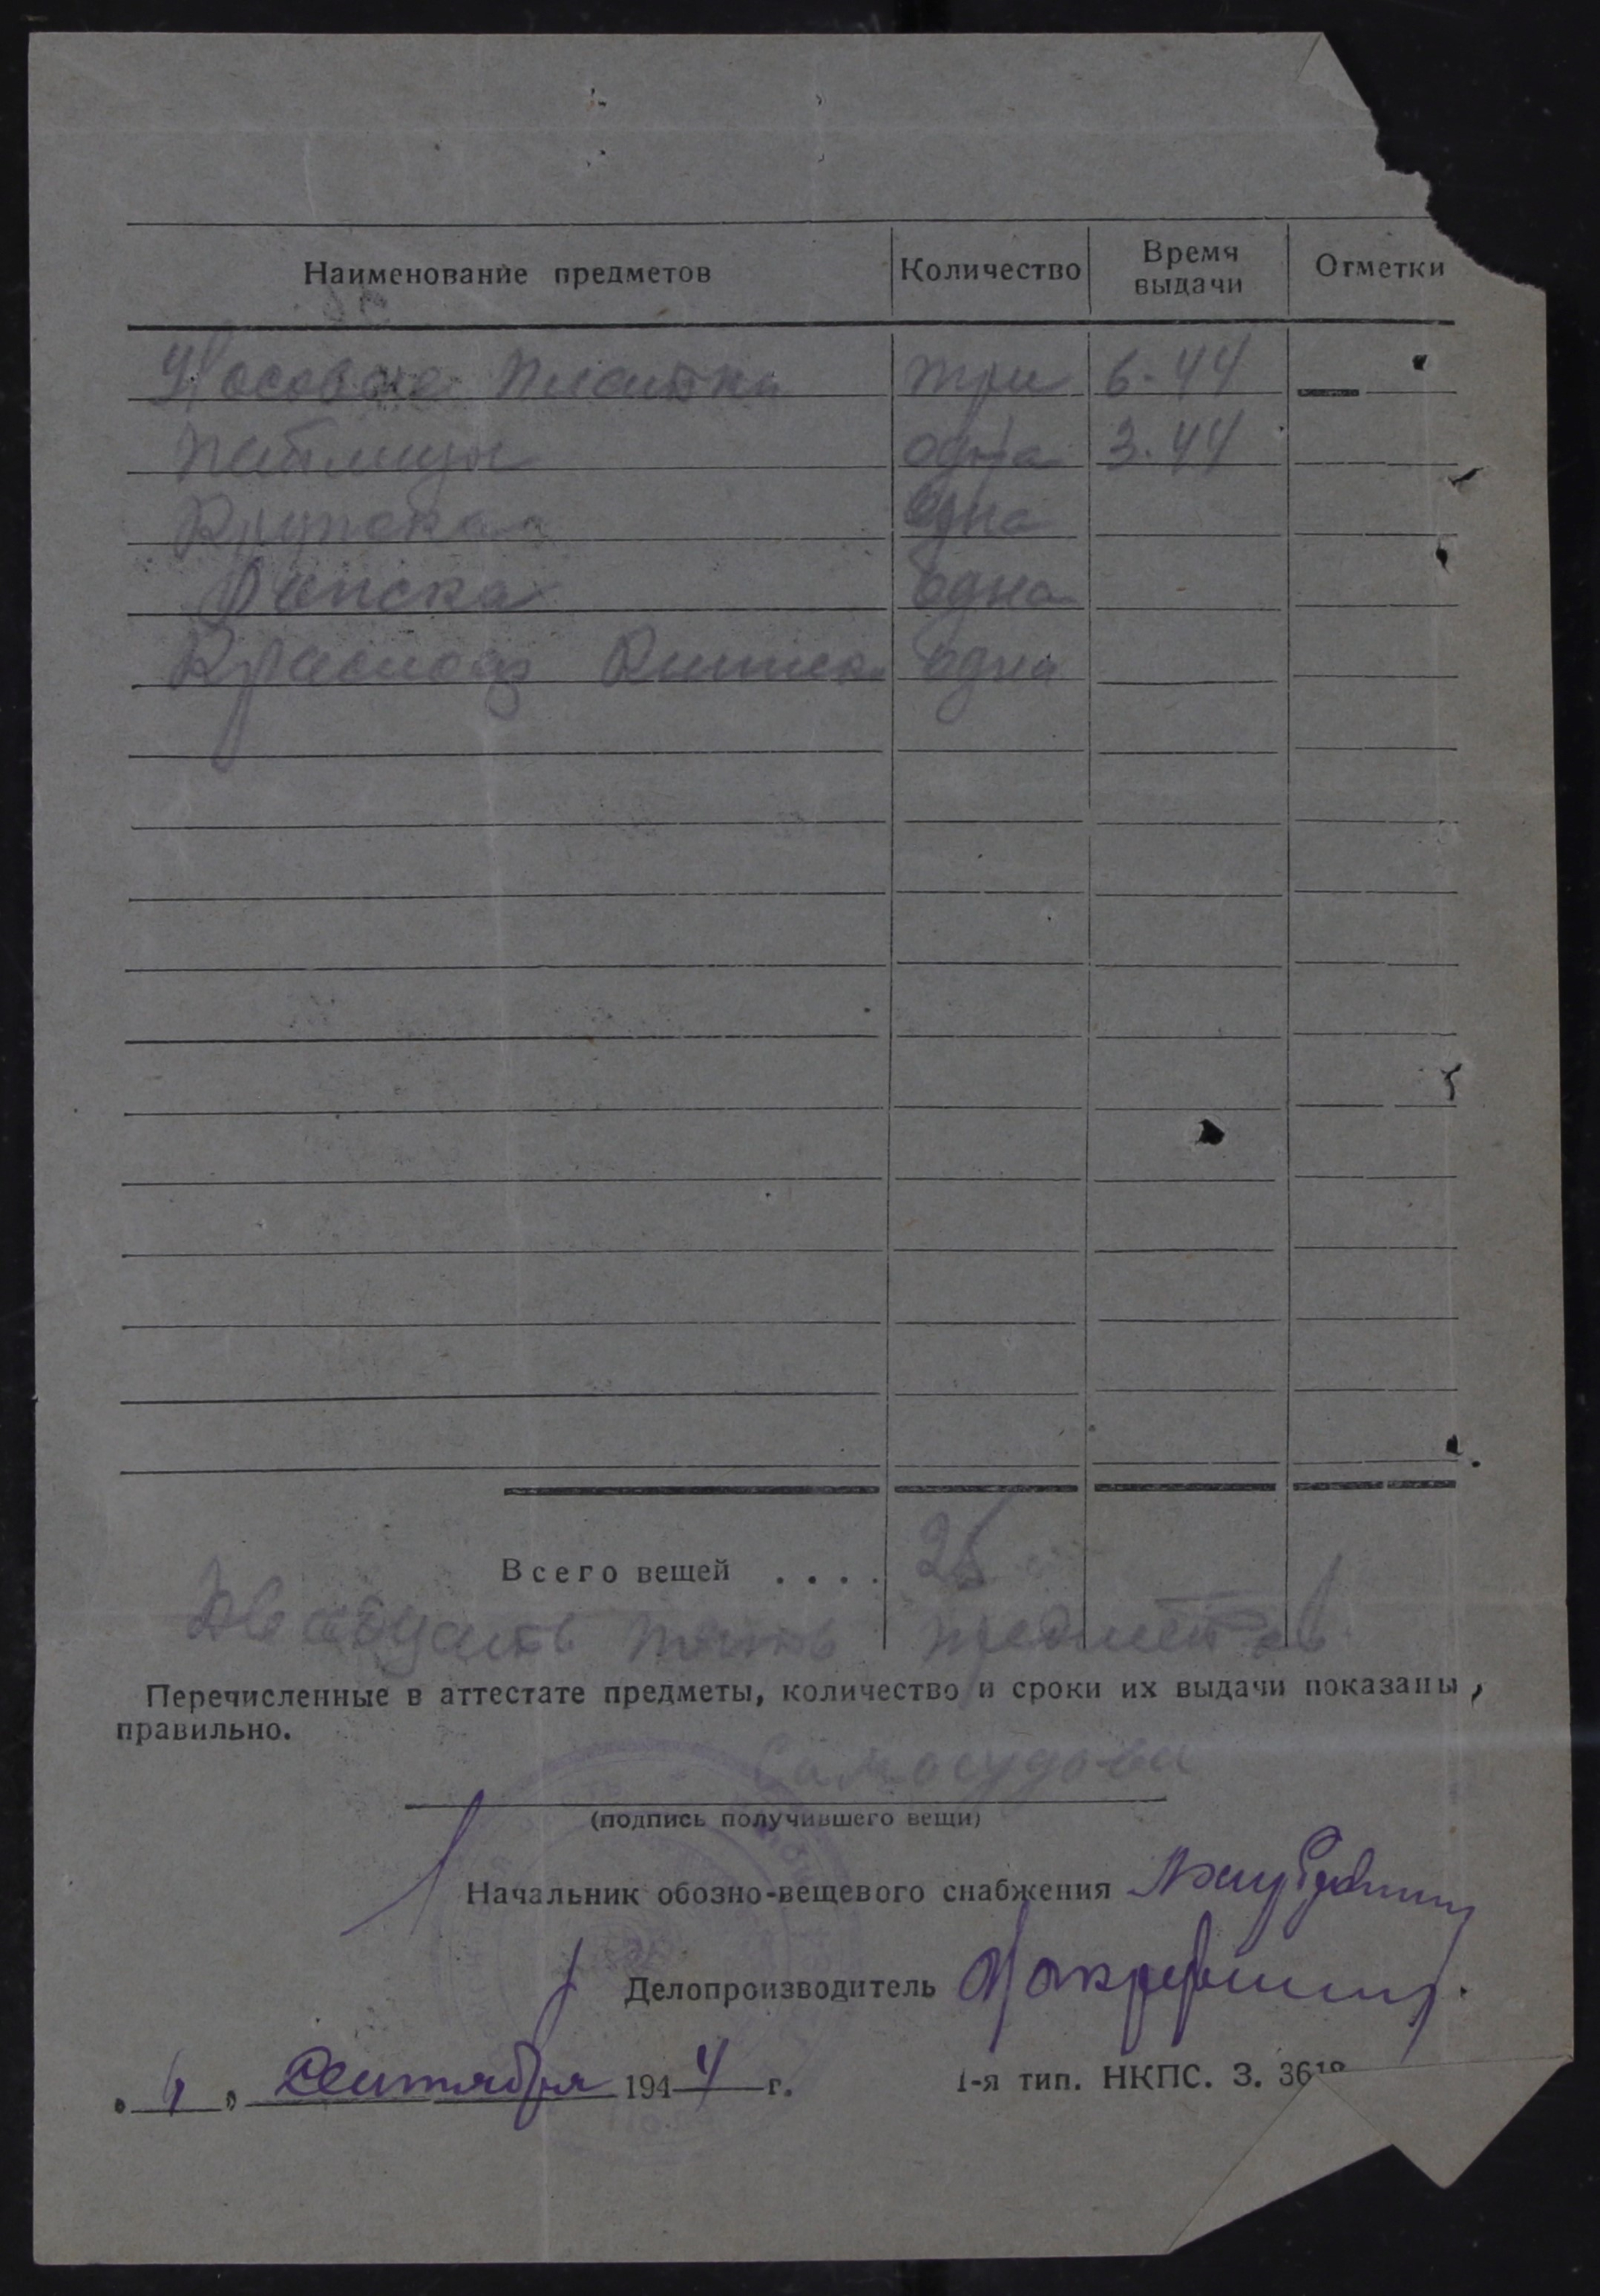 Наименование предметов Количество Время выдачи Отметки
Носовые платки три 6.44
Петлицы одна 3.44
одна
Миска одна
Красноар Книжка одна
Всего вещей . . . . 25
Двадцать пять предметов
Перечисленные в аттестате предметы, количество и сроки их выдачи показаны
правильно.
Самосудова
(подпись получившего вещи)
Начальник обозно-вещевого снабжения
Делопроизводитель
сентября 1944 г.
1-я тип. НКПС. З.